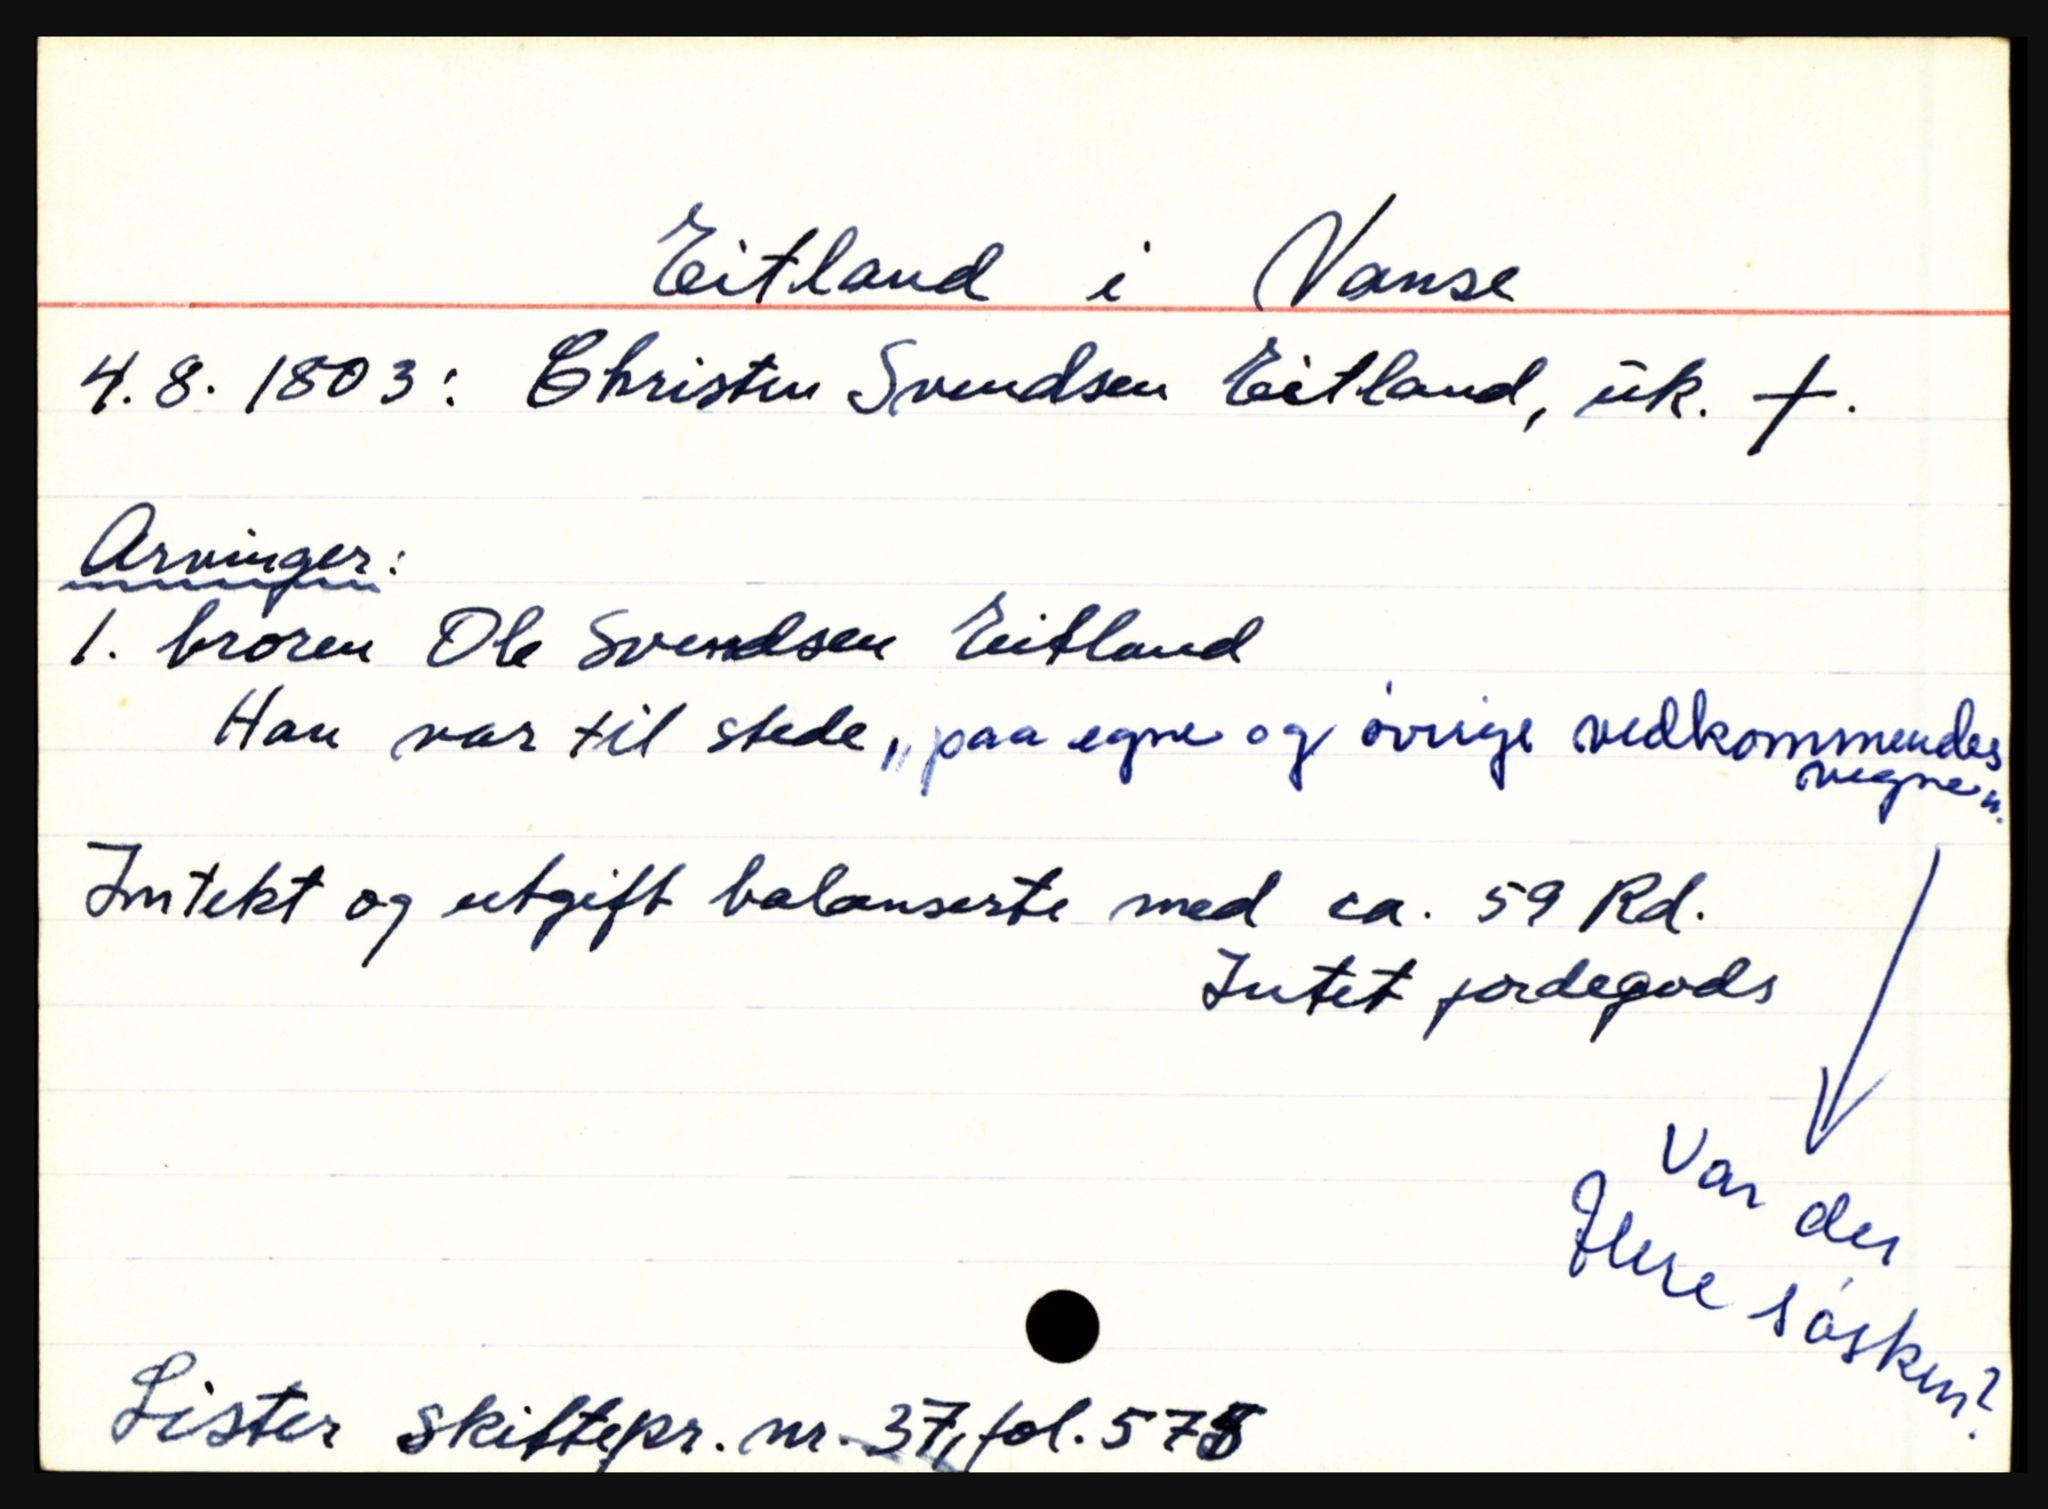 Eitland i Vanse
4.8. 1803: Christen Svendsen Eitland, uk. †.
Arvinger:
1. broren Ole Svendsen Eitland
Han var til stede „paa egne og øvrige vedkommendes
vegne".
Inntekt og utgift balanserte med ca. 59 Rd.
Intet jordegods
Var der
flere søsken?
Lister skiftepr. nr. 37, fol.